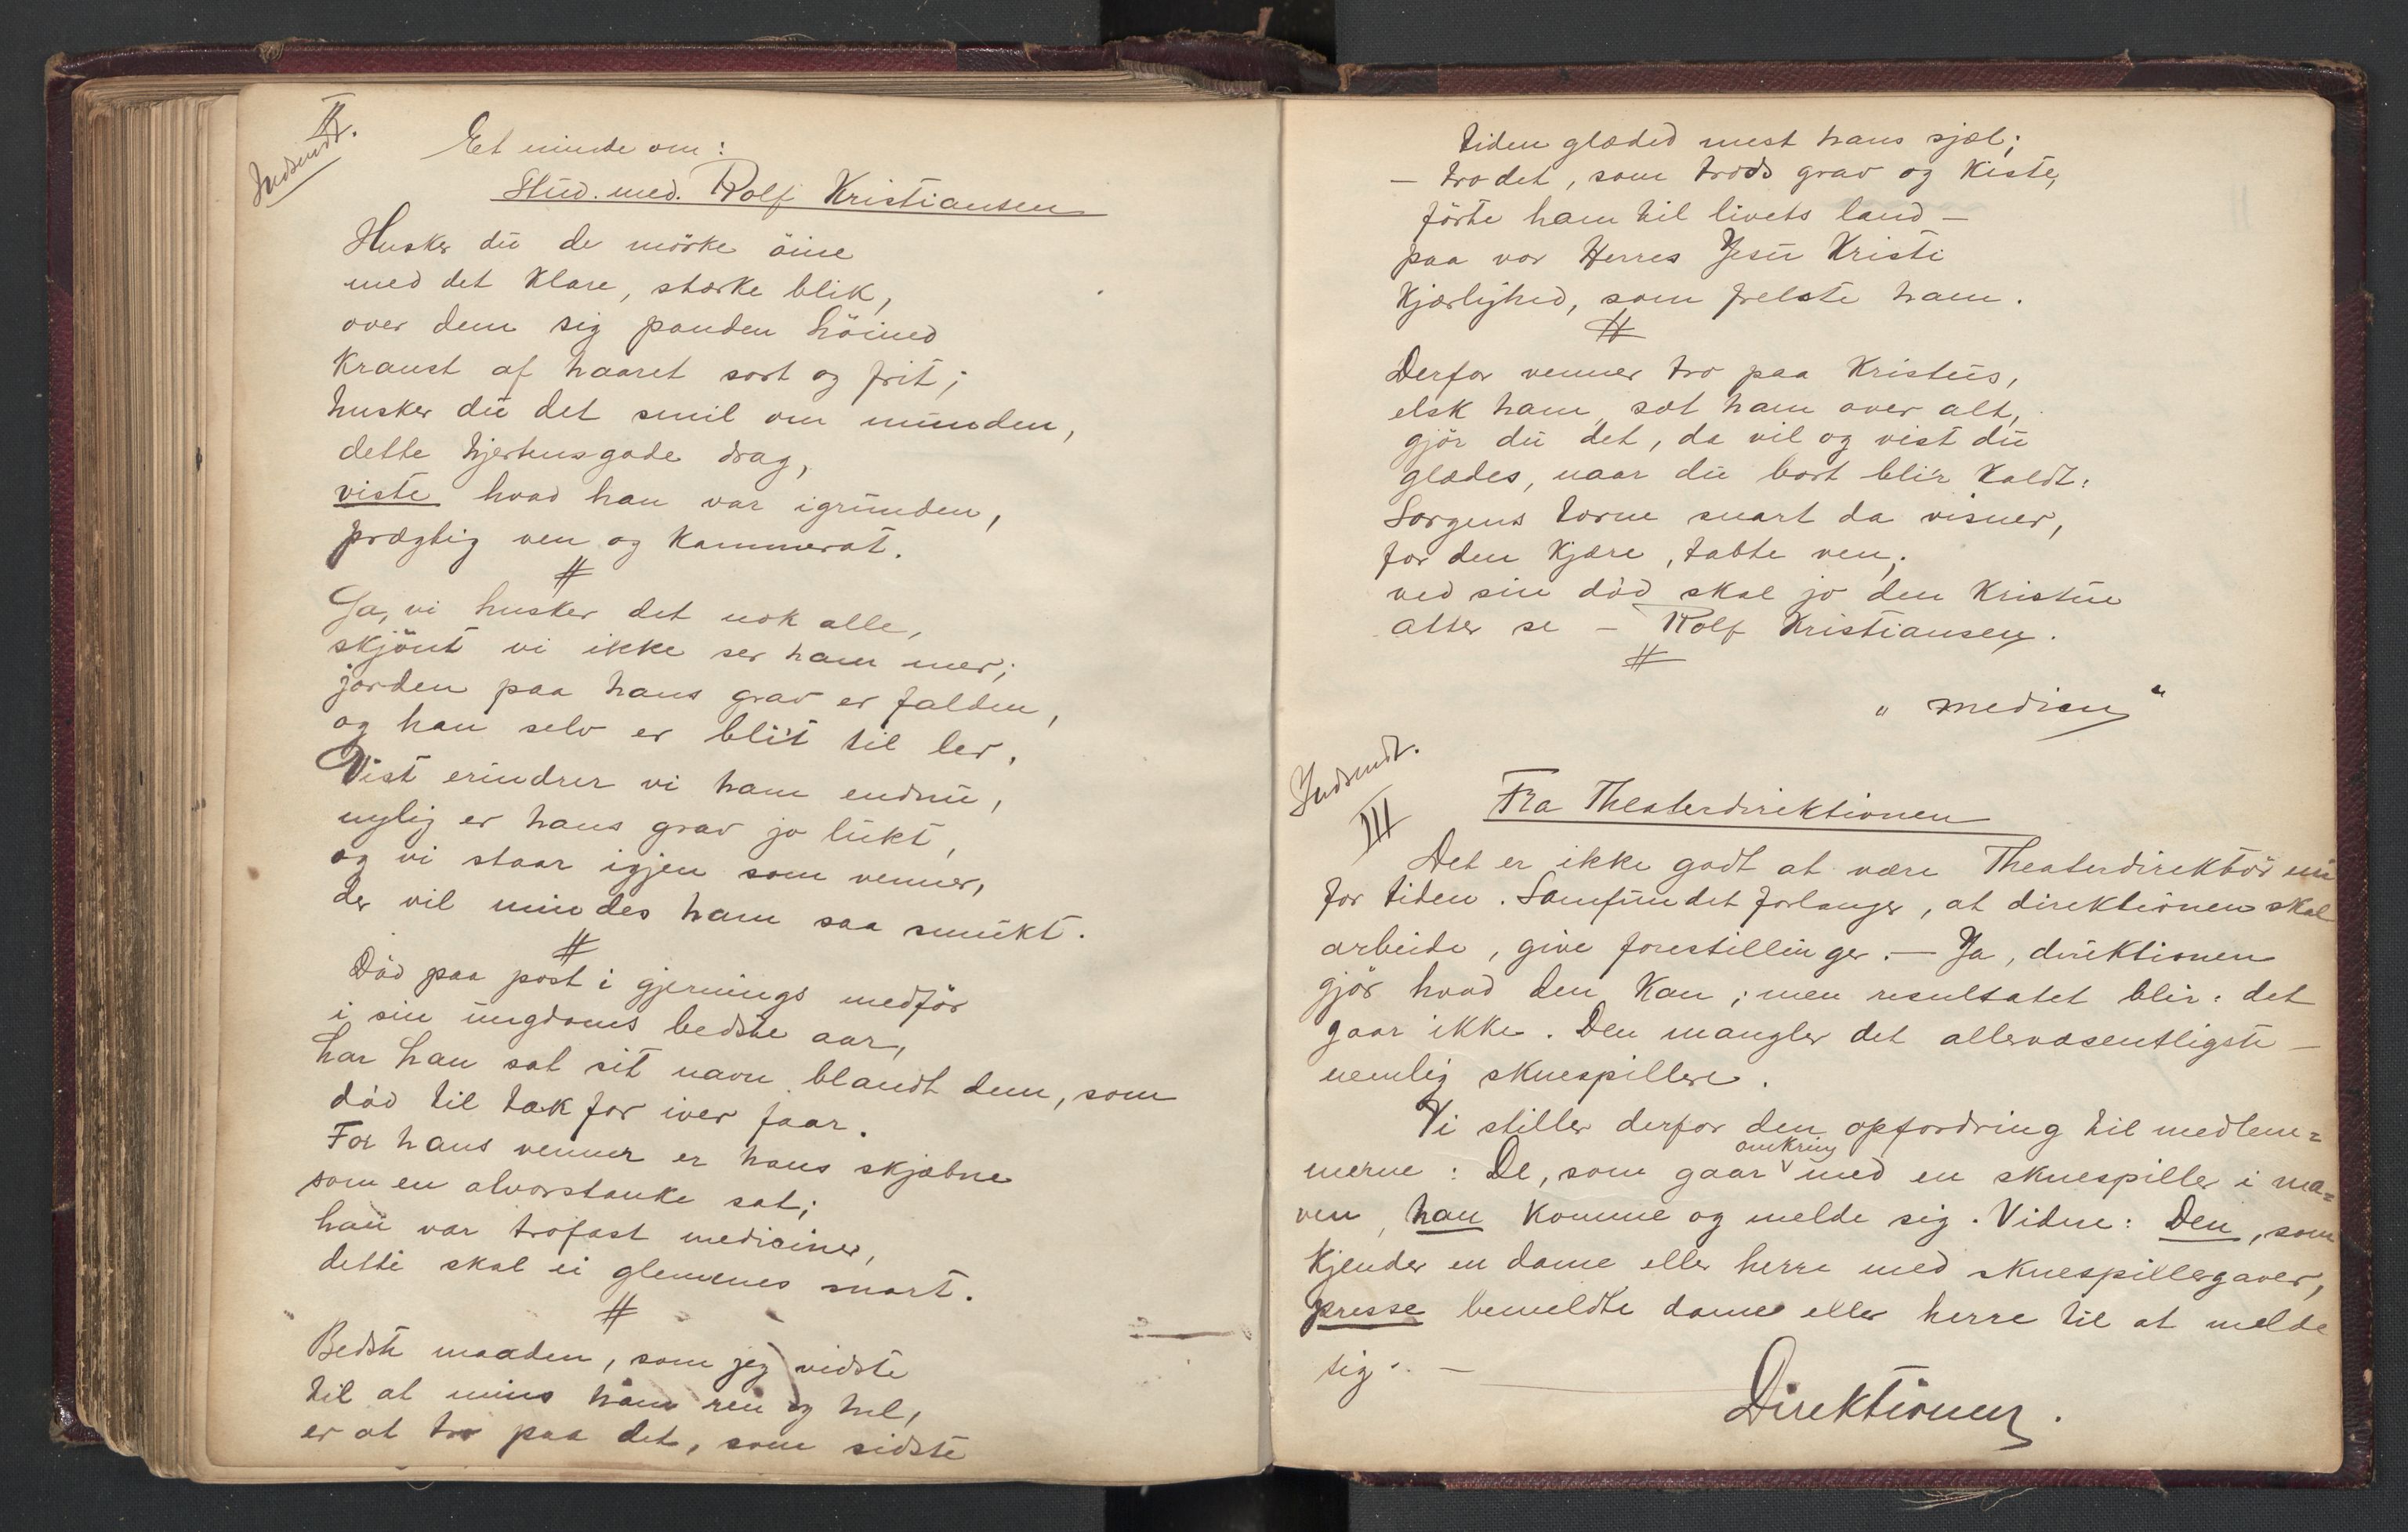 II.
Indsendt.
Et minde om:
Stud. med. Rolf Kristiansen
Husker du de mörke öine
med det klare, stærke blik,
over dem sig panden höined
kranst af haaret sort og frit;
husker du det smil om munden,
dette hjertensgode drag,
viste hvad han var igrunden,
prægtig ven og kammerat.
#
Ja, vi husker det nok alle,
skjönt vi ikke ser ham mer;
jorden paa hans grav er falden,
og han selv er bli't til ler.
Vist erindrer vi ham endnu,
nylig er hans grav jo lukt,
og vi staar igjen som venner,
der vil mindes ham saa smukt.
#
Död paa post i gjernings medför
i sin ungdoms bedste aar,
har han sat sit navn blandt dem, som
död til tak for iver faar.
For hans venner er hans skjæbne
som en alvorstanke sat;
han var trofast mediciner,
dette skal ei glemmes snart.
#
Bedste maaden, som jeg vidste
til at mins ham ren og hel,
er at tro paa det, som sidste
tiden glæded mest hans sjæl;
– tro det, som trods grav og kiste,
förte ham til livets land –
paa vor Herres Jesu Kristi
Kjærlighed, som frelste ham.
#
Derfor venner tro paa Kristus,
elsk ham, sæt ham over alt,
gjör du det, da vil og vist du
glædes, naar du bort bli'r kaldt:
Sorgens torne snart da visner,
for den kjære, tabte ven;
ved sin död skal jo den Kristne
atter se – Rolf Kristiansen.
#
"medicin"
Indsendt.
III
Fra Theaterdirektionen
Det er ikke godt at være Theaterdirektör nu
for tiden. Samfundet forlanger, at direktionen skal
arbeide, give forestillinger. – Ja, direktionen
gjör hvad den kan; men resultatet blir: det
gaar ikke. Den mangler det allervæsentligste –
nemlig skuespillere.
Vi stiller derfor den opfordring til medlem=
merne: De, som gaar omkring med en skuespiller i ma=
ven, han komme og melde sig. Videre: Den, som
kjender en dame eller herre med skuespillergaver,
presse bemeldte dame eller herre til at melde
sig. –
Direktionen.